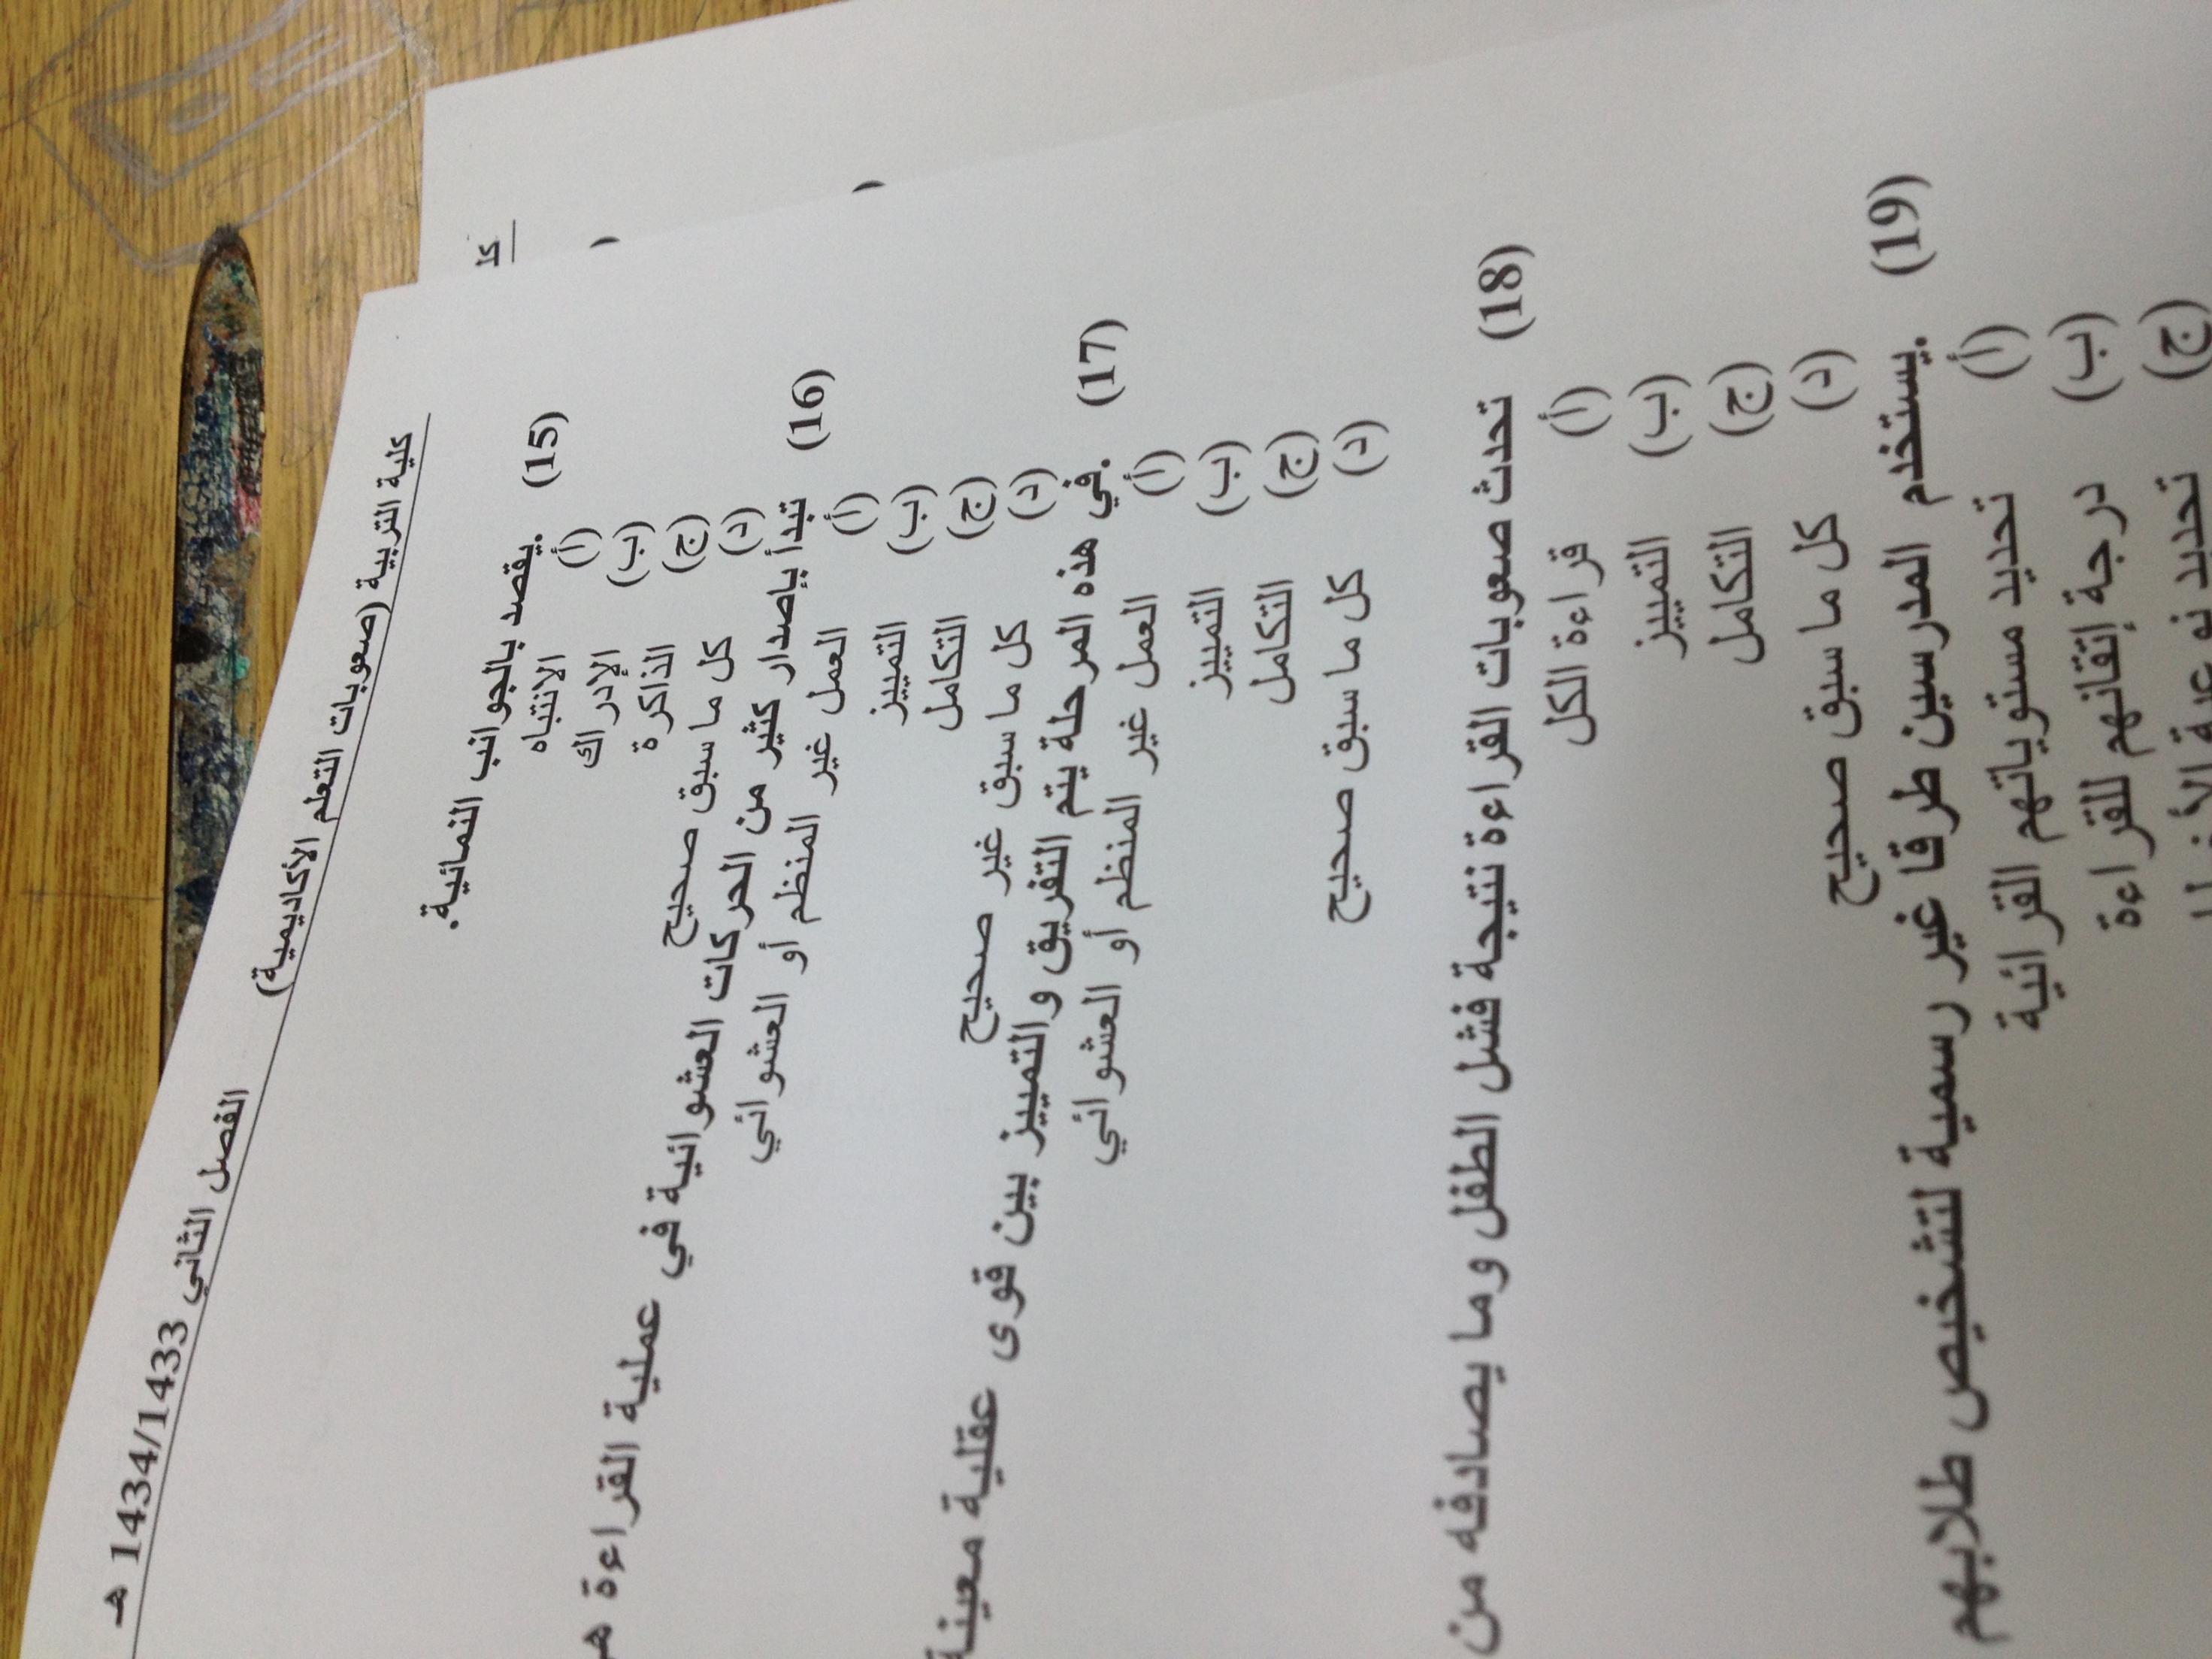 كلية التربية (صعوبات التعلم الأكاديمية) الفصل الثاني 1434/1433 هـ
(15) يقصد بالجوانب النمائية.
(أ) الانتباه
(ب) الإدراك
(ج) الذاكرة
(د) كل ما سبق صحيح
(16) تبدأ بإصدار كثير من الحركات العشوائية في عملية القراءة
(أ) العمل غير المنظم أو العشوائي
(ب) التمييز
(ج) التكامل
(د) كل ما سبق غير صحيح
(17) في هذه المرحلة يتم التفريق والتمييز بين قوى عقلية معينة
(أ) العمل غير المنظم أو العشوائي
(ب) التمييز
(ج) التكامل
(د) كل ما سبق صحيح
(18) تحدث صعوبات القراءة نتيجة فشل الطفل وما يصادفه من
(أ) قراءة الكل
(ب) التمييز
(ج) التكامل
(د) كل ما سبق صحيح
(19) يستخدم المدرسين طرقا غير رسمية لتشخيص طلابهم
(أ) تحديد مستوياتهم القرائية
(ب) درجة إتقانهم للقراءة
(ج) تحديد نوعية
كل